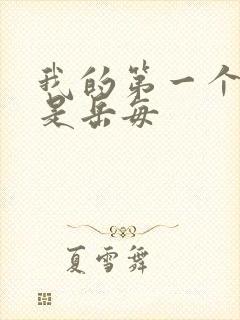 我的第一个
是岳每
夏雪舞